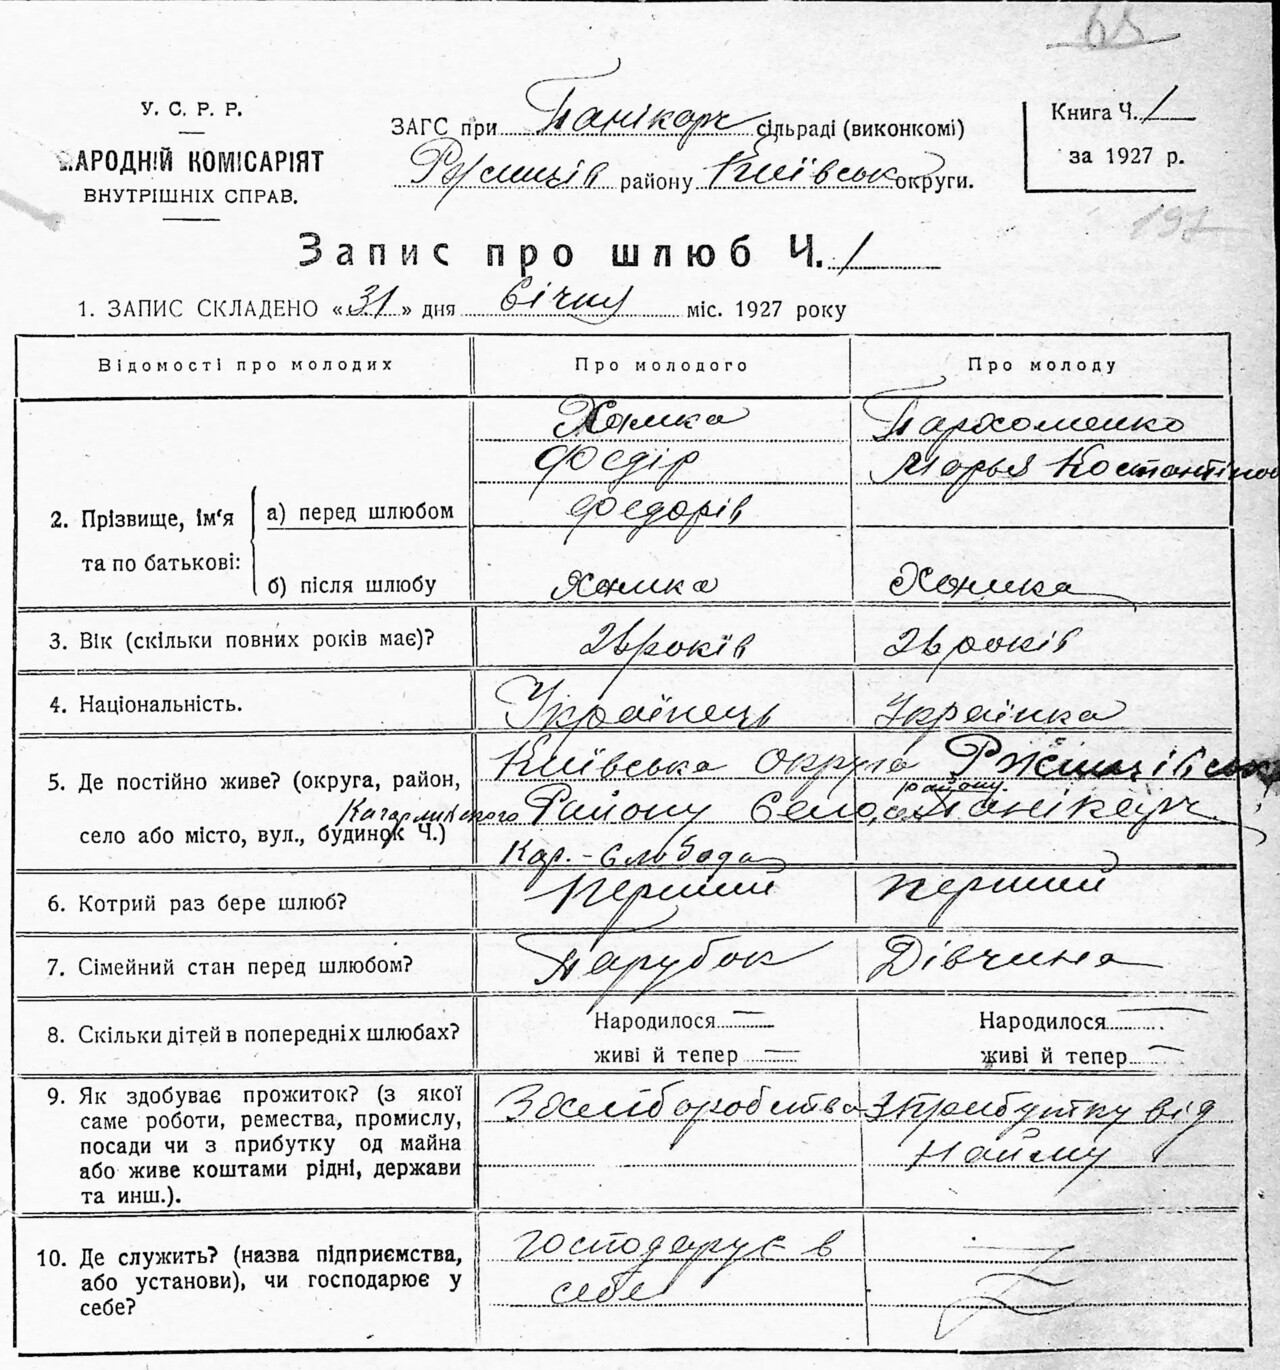 У. С. Р. Р.
НАРОДНІЙ КОМІСАРІЯТ
ВНУТРІШНІХ СПРАВ.
ЗАГС при Панікарч сільраді (виконкомі)
Ржищів району Київськ округи.
Книга Ч. 1
за 1927 р.
197
Запис про шлюб Ч. 1
1. ЗАПИС СКЛАДЕНО «31» дня Січну міс. 1927 року
Відомості про молодих Про молодого Про молоду
2. Прізвище, ім'я та по батькові:
а) перед шлюбом
Хомка Пархоменко
Федір Марья Костантінов
Федорів
б) після шлюбу Хомка Хомка
3. Вік (скільки повних років має)? років років
4. Національність. Українець Українка
5. Де постійно живе? (округа, район, село або місто, вул., будинок Ч.)
Київська округа Ржищівськ
району
Кагарлицкого Району Село, сел Панікарч
Кар.-Слобода
6. Котрий раз бере шлюб? Перший Перший
7. Сімейний стан перед шлюбом? Парубок Дівчина
8. Скільки дітей в попередніх шлюбах? Народилося — Народилося —
живі й тепер — живі й тепер —
9. Як здобуває прожиток? (з якої
саме роботи, ремества, промислу,
посади чи з прибутку од майна
або живе коштами рідні, держави
та инш.).
З хліборобства З прибутку від
найму
10. Де служить? (назва підприємства,
або установи), чи господарює у
себе?
господарує в
себе